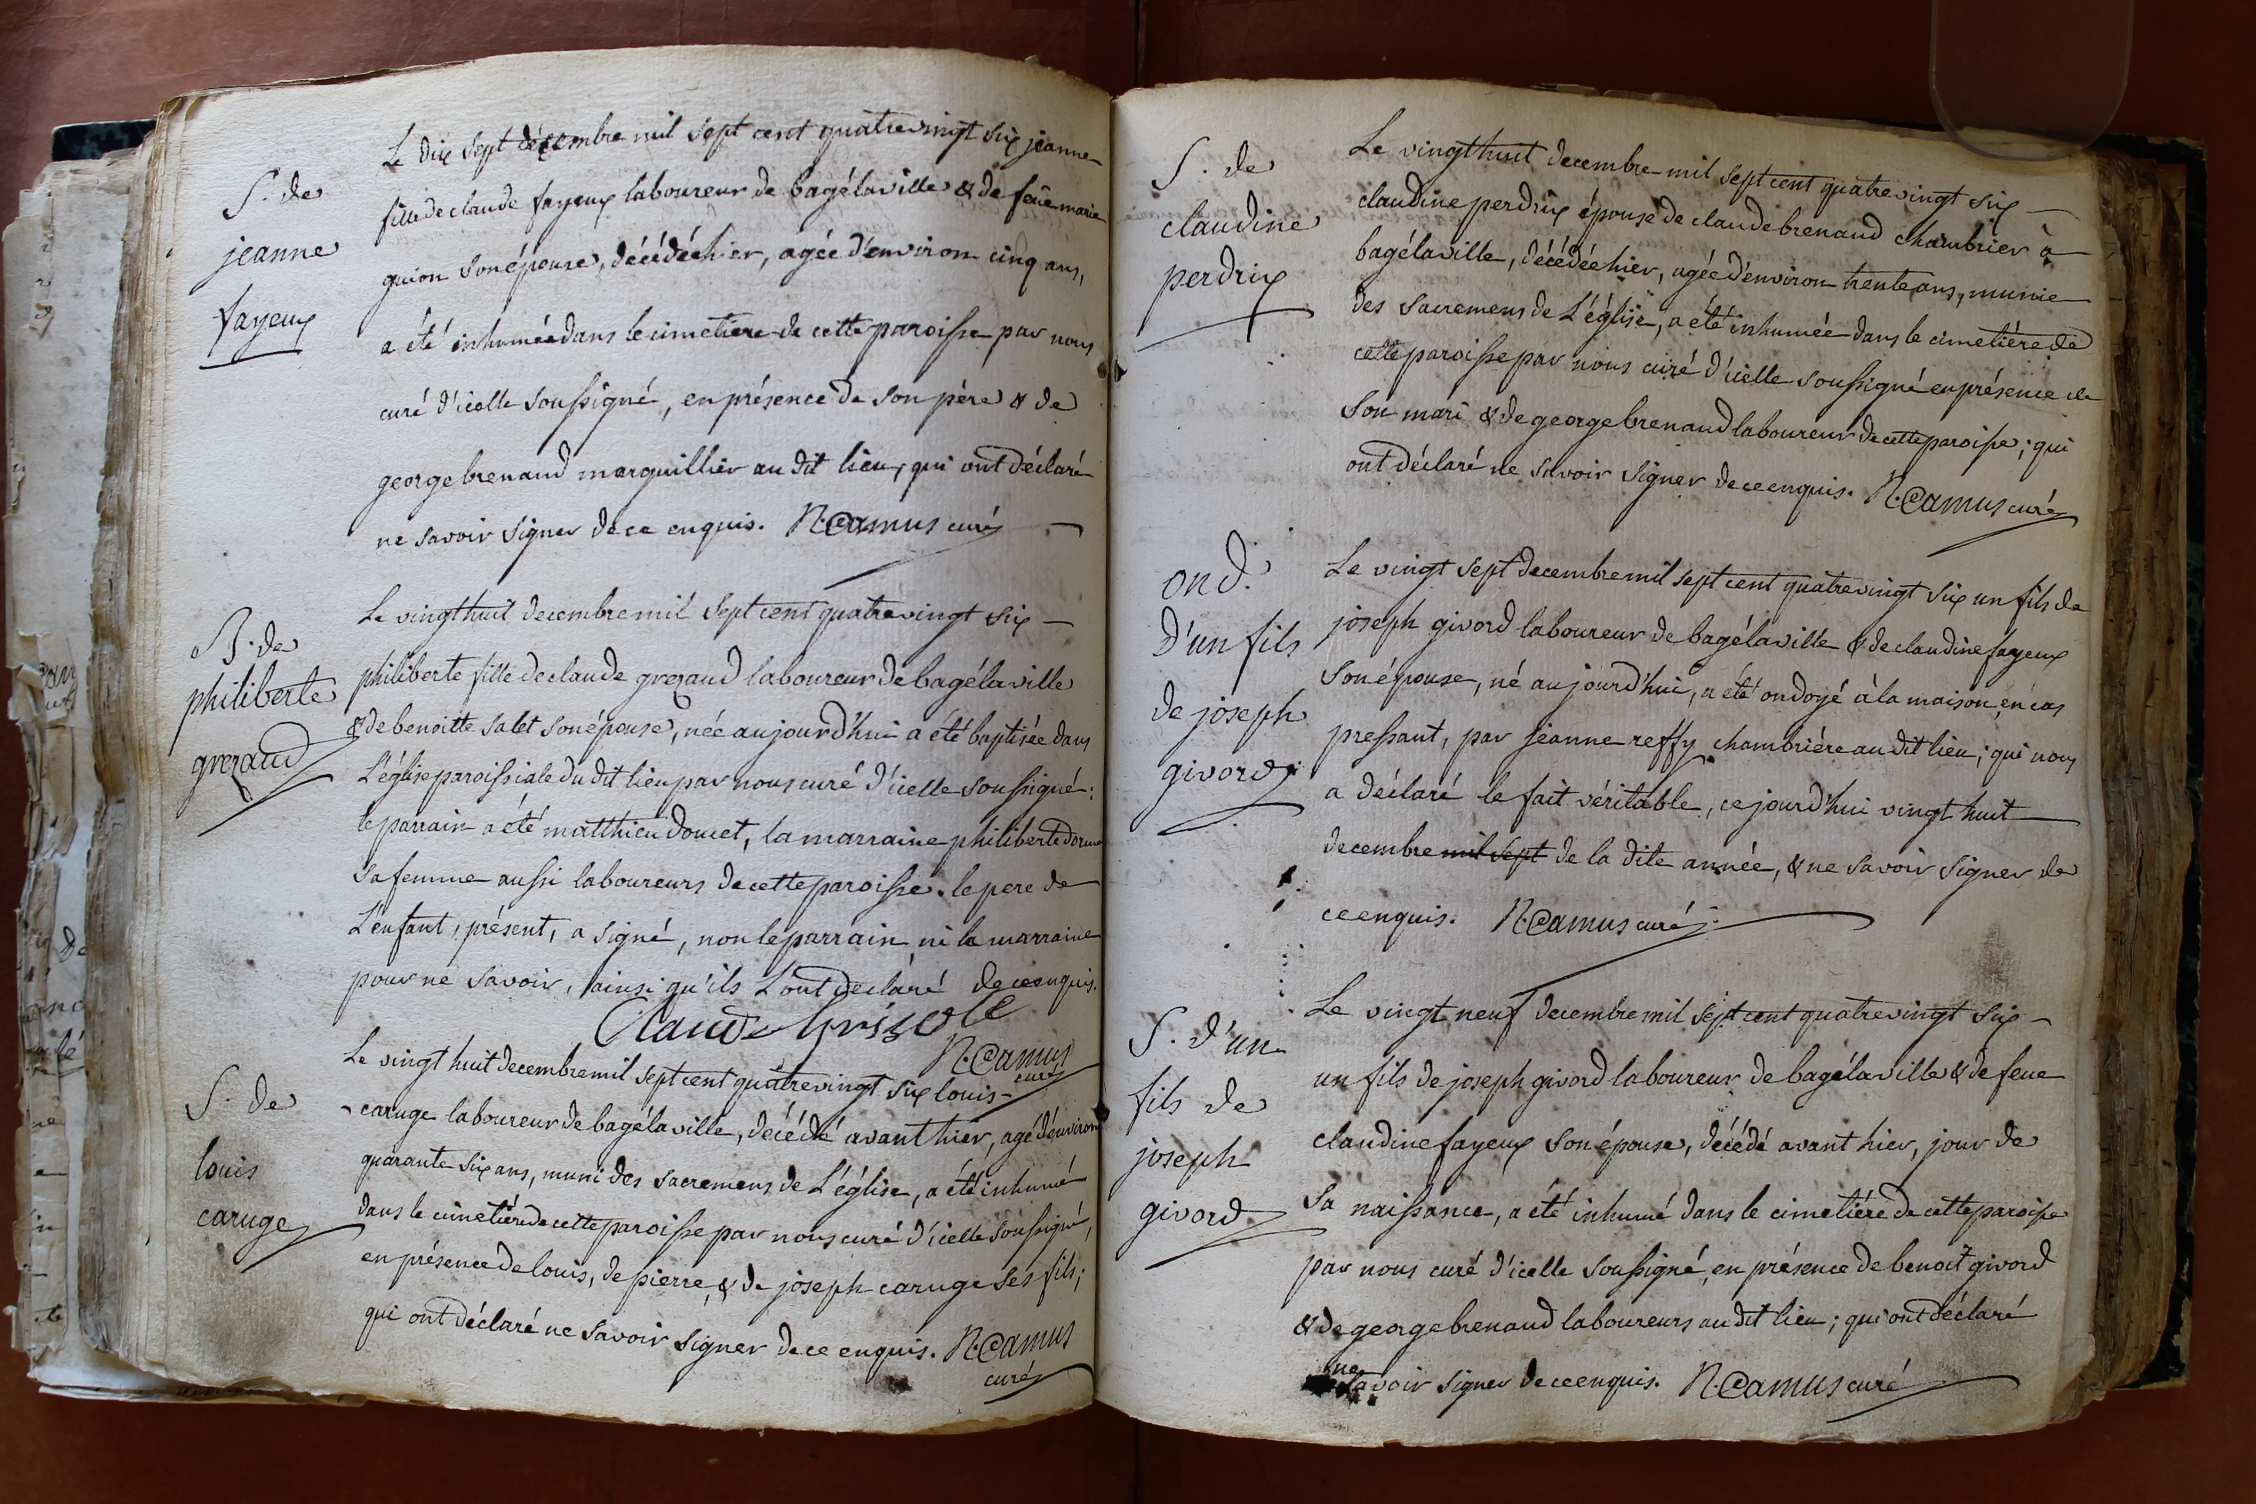 S. de
jeanne
fayeux
Le dix sept décembre mil sept cent quatrevingt six jeanne
fille de claude fayeux laboureur de bagélaville & de feüe marie
guion son épouse, décédée hier, agée d'environ cinq ans,
a été inhumée dans le cimetiere de cette paroisse par nous
curé d'icelle soussigné, en présence de son pére & de
george brenaud marguillier au dit lieu, qui ont déclaré
ne savoir signer de ce enquis. N. Camus curé
B. de
philiberte
grezaud
Le vingthuit decembre mil sept cent quatrevingt six
philiberte fille de claude grezaud laboureur de bagélaville
& de benoitte salet son épouse, née aujourd'hui a été baptisée dans
L'église paroissiale du dit lieu par nous curé d'icelle soussigné:
le parrain a été matthieu doucet, la marraine philiberte
sa femme aussi laboureurs de cette paroisse. le pere de
L'enfant, présent, a signé, non le parrain ni la marraine
pour ne savoir, ainsi qu'ils L'ont déclaré de ce enquis.
Claude
N. Camus
curé
S. de
louis
caruge
Le vingt huit decembre mil sept cent quatrevingt six louis
caruge laboureur de bagélaville, décédé avant hier, agé d'environ
quarante six ans, muni des sacremens de L'église, a été inhumé
dans le cimetiére de cette paroisse par nous curé d'icelle soussigné,
en présence de louis, de pierre, & de joseph caruge ses fils;
qui ont déclaré ne savoir signer de ce enquis. N. Camus
curé
S. de
claudine
perdrix
Le vingthuit decembre mil sept cent quatrevingt six
claudine perdrix épouse de claude brenaud chambrier à
bagélaville, décédée hier, agée d'environ trente ans, munie
des sacremens de L'église, a été inhumée dans le cimetiére de
cette paroisse par nous curé d'icelle soussigné en présence de
son mari & de george brenaud laboureur de cette paroisse; qui
ont déclaré ne savoir signer de ce enquis. N. Camus curé
ond.
D'un fils
de joseph
givord
Le vingt sept decembre mil sept cent quatrevingt six un fils de
joseph givord laboureur de bagélaville & de claudine fayeux
son épouse, né aujourd'hui, a été ondoyé à la maison, en cas
pressant, par jeanne reffy chambriére au dit lieu; qui nous
a déclaré le fait véritable, ce jourd'hui vingt huit
decembre mil sept de la dite année, & ne savoir signer de
ce enquis. N. Camus curé
S. d'un
fils de
joseph
givord
Le vingt neuf decembre mil sept cent quatrevingt six
un fils de joseph givord laboureur de bagélaville & de feue
claudine fayeux son épouse, décédé avant hier, jour de
sa naissance, a été inhumé dans le cimetiére de cette paroisse
par nous curé d'icelle soussigné, en présence de benoit givord
& de george brenaud laboureurs au dit lieu; qui ont déclaré
ne savoir signer de ce enquis. N. Camus curé